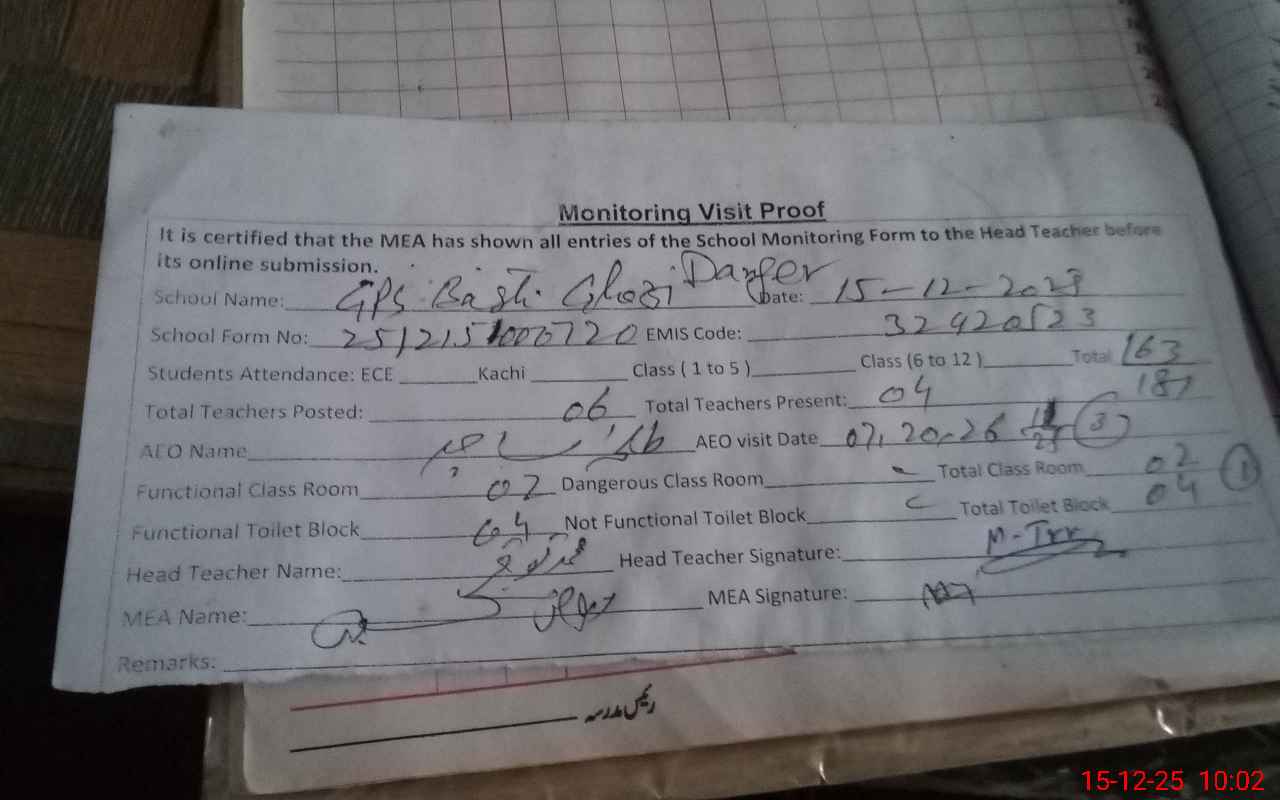 Monitoring Visit Proof
It is certified that the MEA has shown all entries of the School Monitoring Form to the Head Teacher before
its online submission.
School Name: GPS Basti Ghazi Date: 15-12-2023
School Form No: EMIS Code: 32420523
Students Attendance: ECE Kachi Class ( 1 to 5 ) Class (6 to 12 ) Total 163
187
Total Teachers Posted: 06 Total Teachers Present: 04
AEO Name AEO visit Date 07, 20, 26 3
Functional Class Room 02 Dangerous Class Room Total Class Room 02 1
Functional Toilet Block 04 Not Functional Toilet Block Total Toilet Block 04
Head Teacher Name: Head Teacher Signature:
MEA Name: MEA Signature:
Remarks:
رئیس مدرسہ
15-12-25 10:02